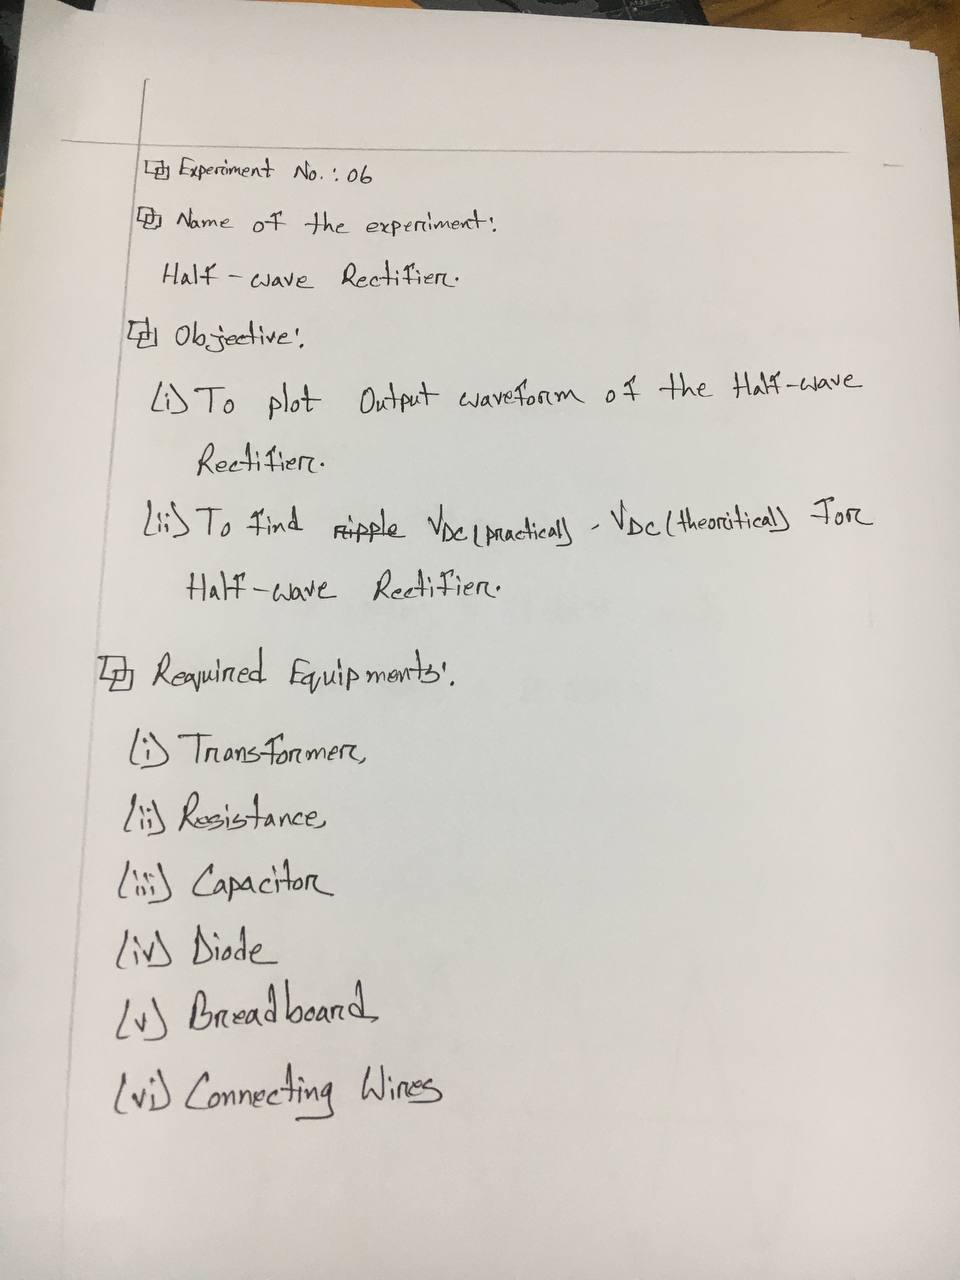 Experiment No. : 06
Name of the experiment:
Half-wave Rectifier.
Objective:
(i) To plot Output waveform of the Half-wave
Rectifier.
(ii) To find ripple VDC (practical) - VDC (theoritical) for
Half-wave Rectifier.
Required Equipments:
(i) Transformer,
(ii) Resistance,
(iii) Capacitor
(iv) Diode
(v) Breadboard,
(vi) Connecting Wires